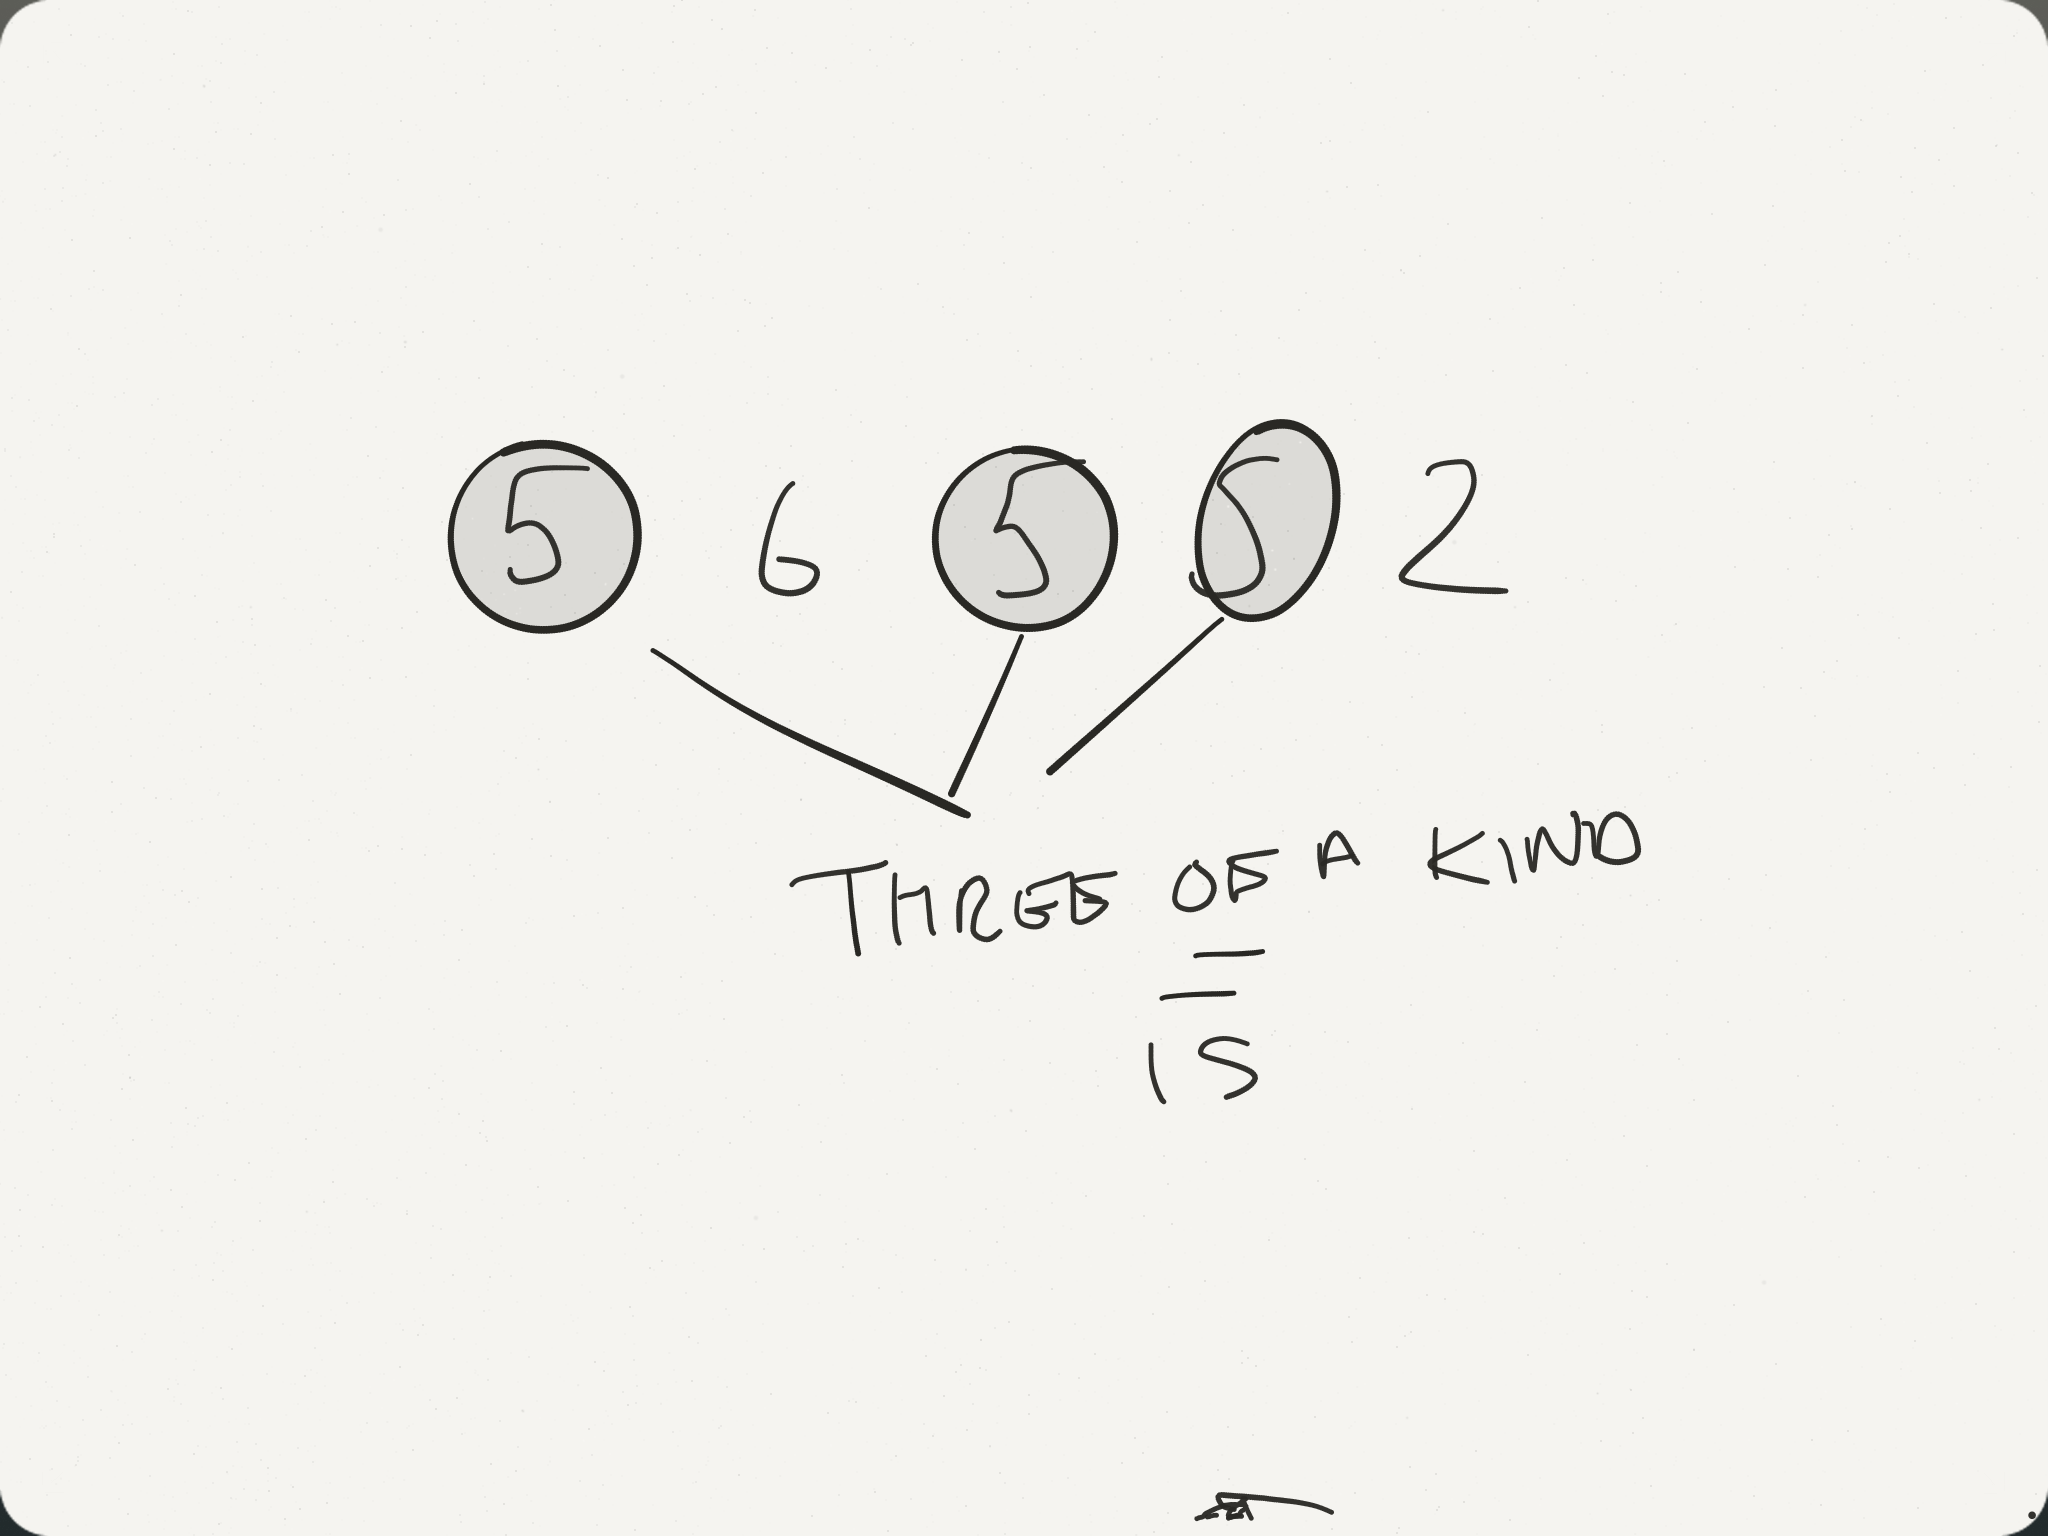 5 6 5 5 2
THREE OF A KIND
=
15